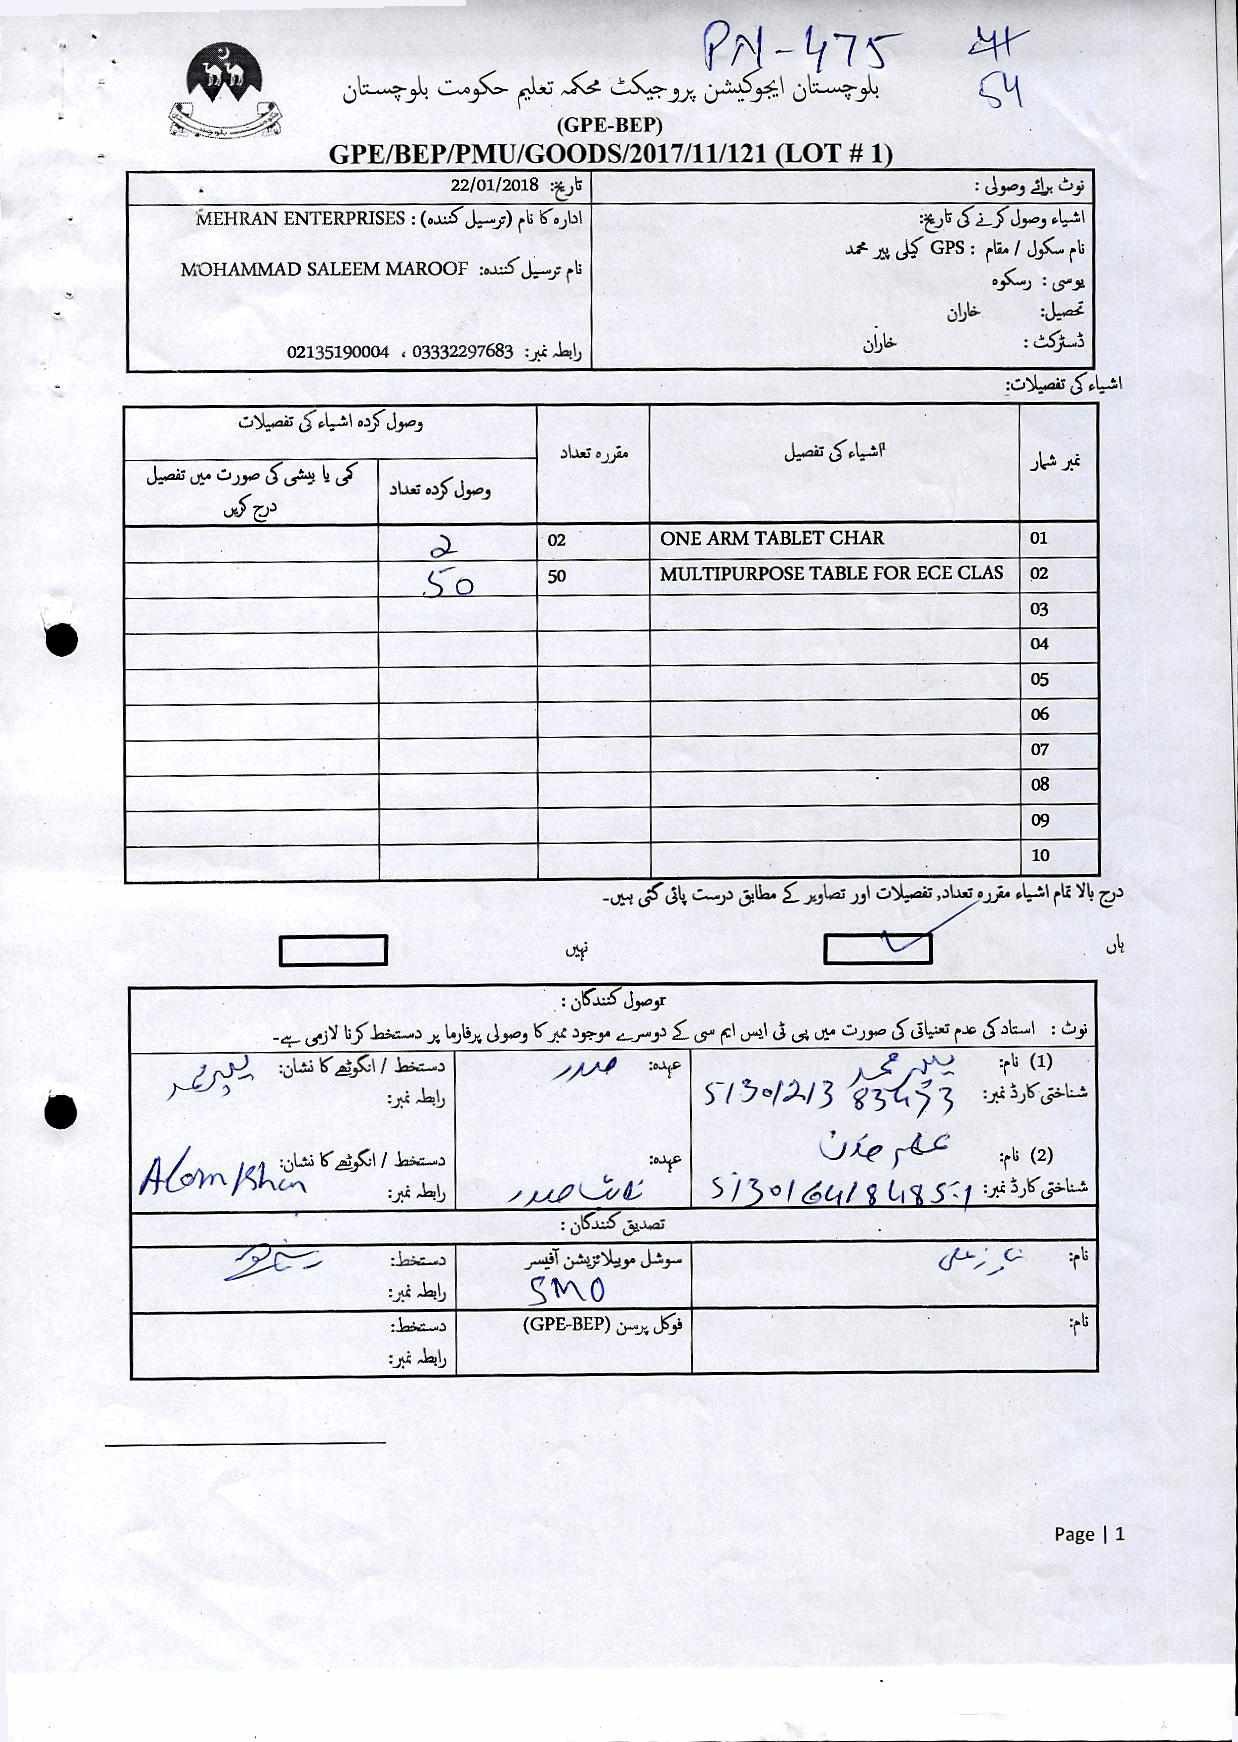 PN-475
54
بلوچستان ایجوکیشن پروجیکٹ محکمہ تعلیم حکومت بلوچستان
(GPE-BEP)
GPE/BEP/PMU/GOODS/2017/11/121 (LOT # 1)
نوٹ برائے وصولی :
اشیاء وصول کرنے کی تاریخ:
نام سکول / مقام : GPS کیلی پیر محمد
یوسی : رسکوہ
تحصیل: خاران
ڈسٹرکٹ : خاران
تاریخ: 22/01/2018
ادارہ کا نام (ترسیل کنندہ) : MEHRAN ENTERPRISES
نام ترسیل کنندہ: MOHAMMAD SALEEM MAROOF
رابطہ نمبر: 03332297683 ، 02135190004
اشیاء کی تفصیلات:
نمبر شمار اشیاء کی تفصیل مقررہ تعداد وصول کردہ اشیاء کی تفصیلات
وصول کردہ تعداد کمی یا بیشی کی صورت میں تفصیل درج کریں
01 ONE ARM TABLET CHAR 02 2
02 MULTIPURPOSE TABLE FOR ECE CLAS 50 50
03
04
05
06
07
08
09
10
درج بالا تمام اشیاء مقررہ تعداد, تفصیلات اور تصاویر کے مطابق درست پائی گئی ہیں۔
ہاں نہیں
وصول کنندگان :
نوٹ : استاد کی عدم تعنیاتی کی صورت میں پی ٹی ایس ایم سی کے دوسرے موجود ممبر کا وصولی پرفارما پر دستخط کرنا لازمی ہے۔
(1) نام: پیر محمد عہدہ: صدر دستخط / انگوٹھے کا نشان: پیر محمد
شناختی کارڈ نمبر: رابطہ نمبر:
(2) نام: عہدہ: نائب صدر دستخط / انگوٹھے کا نشان: Alam Khan
شناختی کارڈ نمبر: رابطہ نمبر:
تصدیق کنندگان :
نام: سوشل موبیلائزیشن آفیسر دستخط:
SMO رابطہ نمبر:
نام: فوکل پرسن (GPE-BEP) دستخط:
رابطہ نمبر:
Page | 1